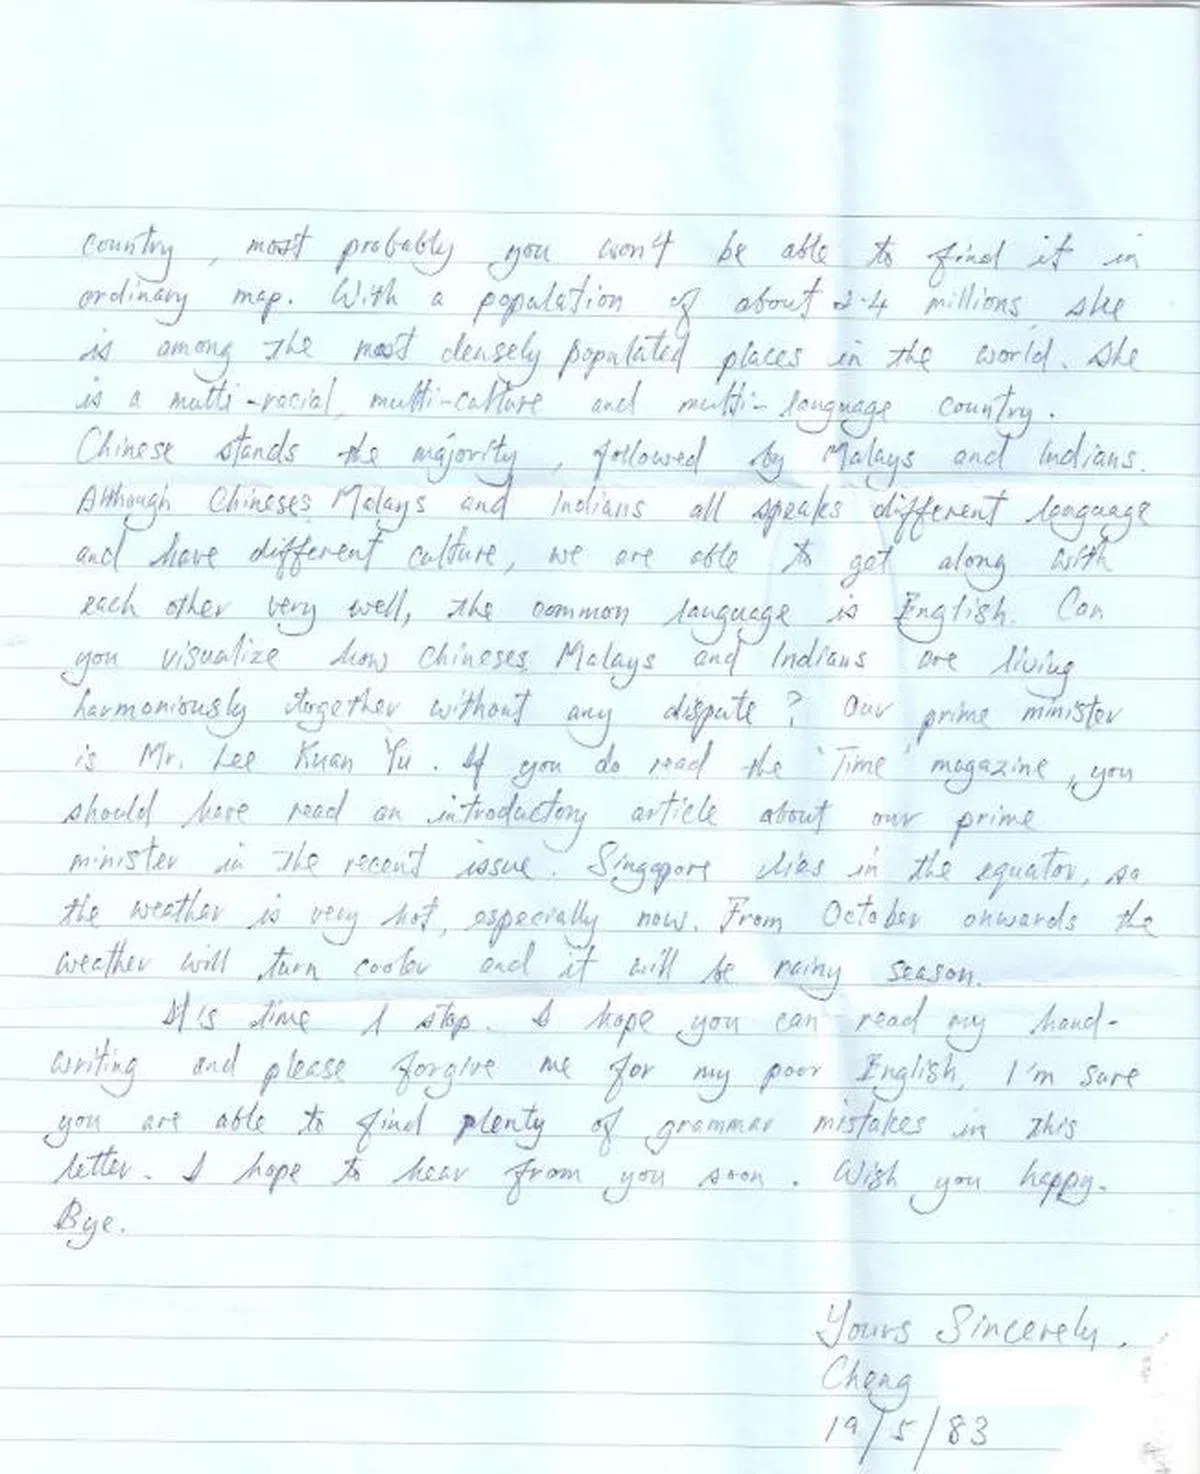 country, most probably you won't be able to find it in
ordinary map. With a population of about 2.4 millions, she
is among the most densely populated places in the world. She
is a multi-racial, multi-culture and multi-language country.
Chinese stands the majority, followed by Malays and Indians.
Although Chineses, Malays and Indians all speaks different language
and have different culture, we are able to get along with
each other very well, the common language is English. Can
you visualize how Chineses, Malays and Indians are living
harmoniously together without any dispute? Our prime minister
is Mr. Lee Kuan Yu. If you do read the 'Time' magazine, you
should have read an introductory article about our prime
minister in the recent issue. Singapore lies in the equator, so
the weather is very hot, especially now. From October onwards the
weather will turn cooler and it will be rainy season.
It is time I stop. I hope you can read my hand-
writing and please forgive me for my poor English, I'm sure
you are able to find plenty of grammar mistakes in this
letter. I hope to hear from you soon. Wish you happy.
Bye.
Yours Sincerely,
Cheng
19/5/83